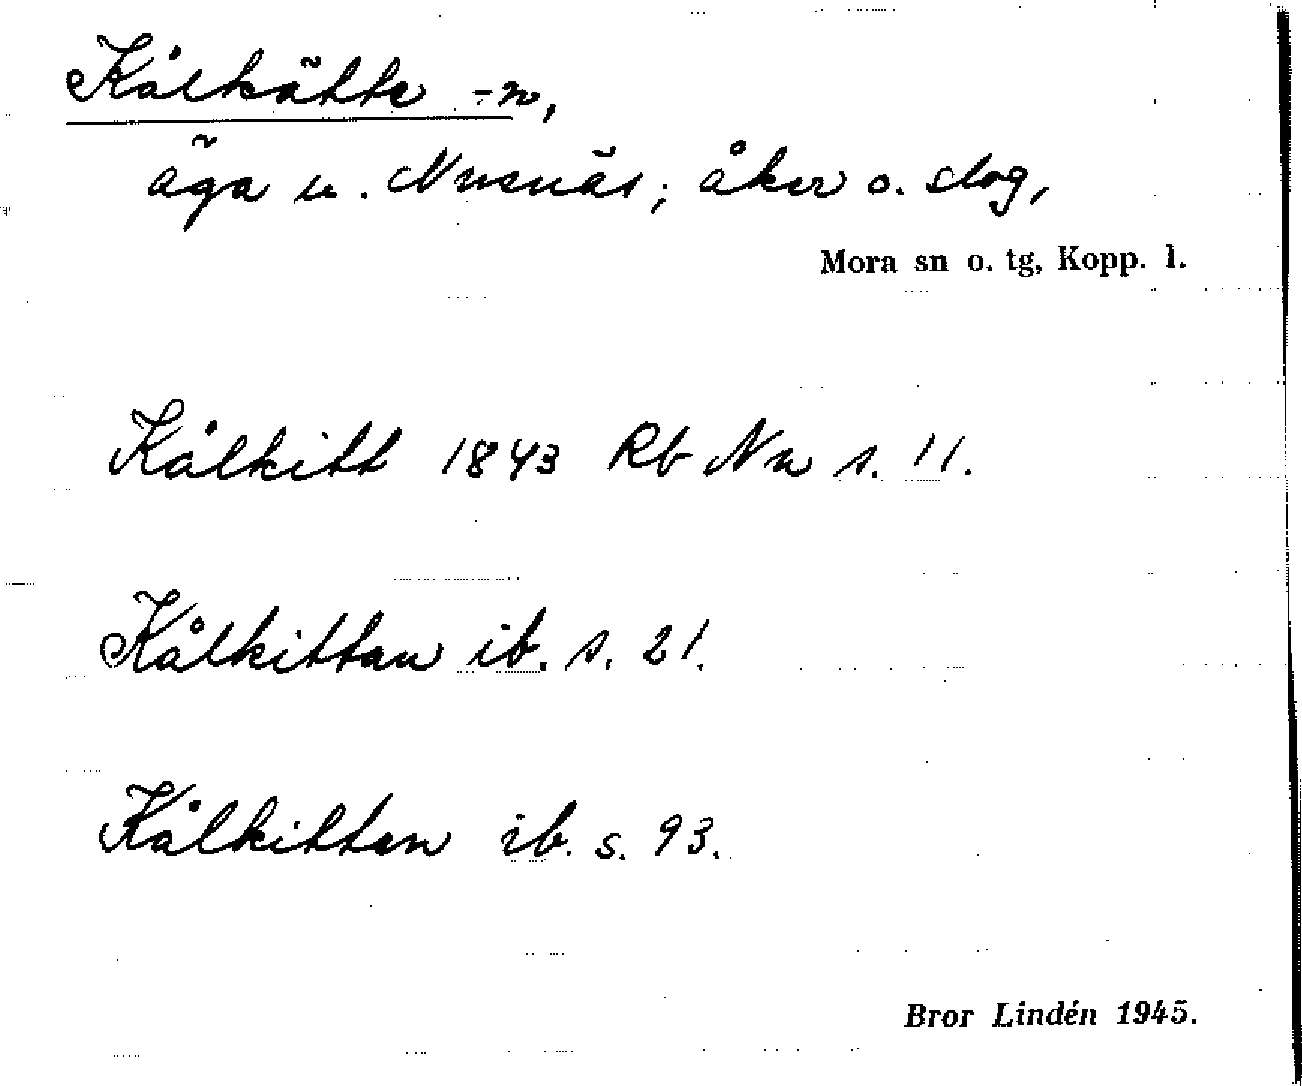 Kålkätte -n,
äga u. Nusnäs; åker o. slog,
Mora sn o. tg, Kopp. l.
Kålkitt 1843 Rb Nu s. 11.
Kålkittan ib. s. 21.
Kålkitten ib. s. 93.
Bror Lindén 1945.